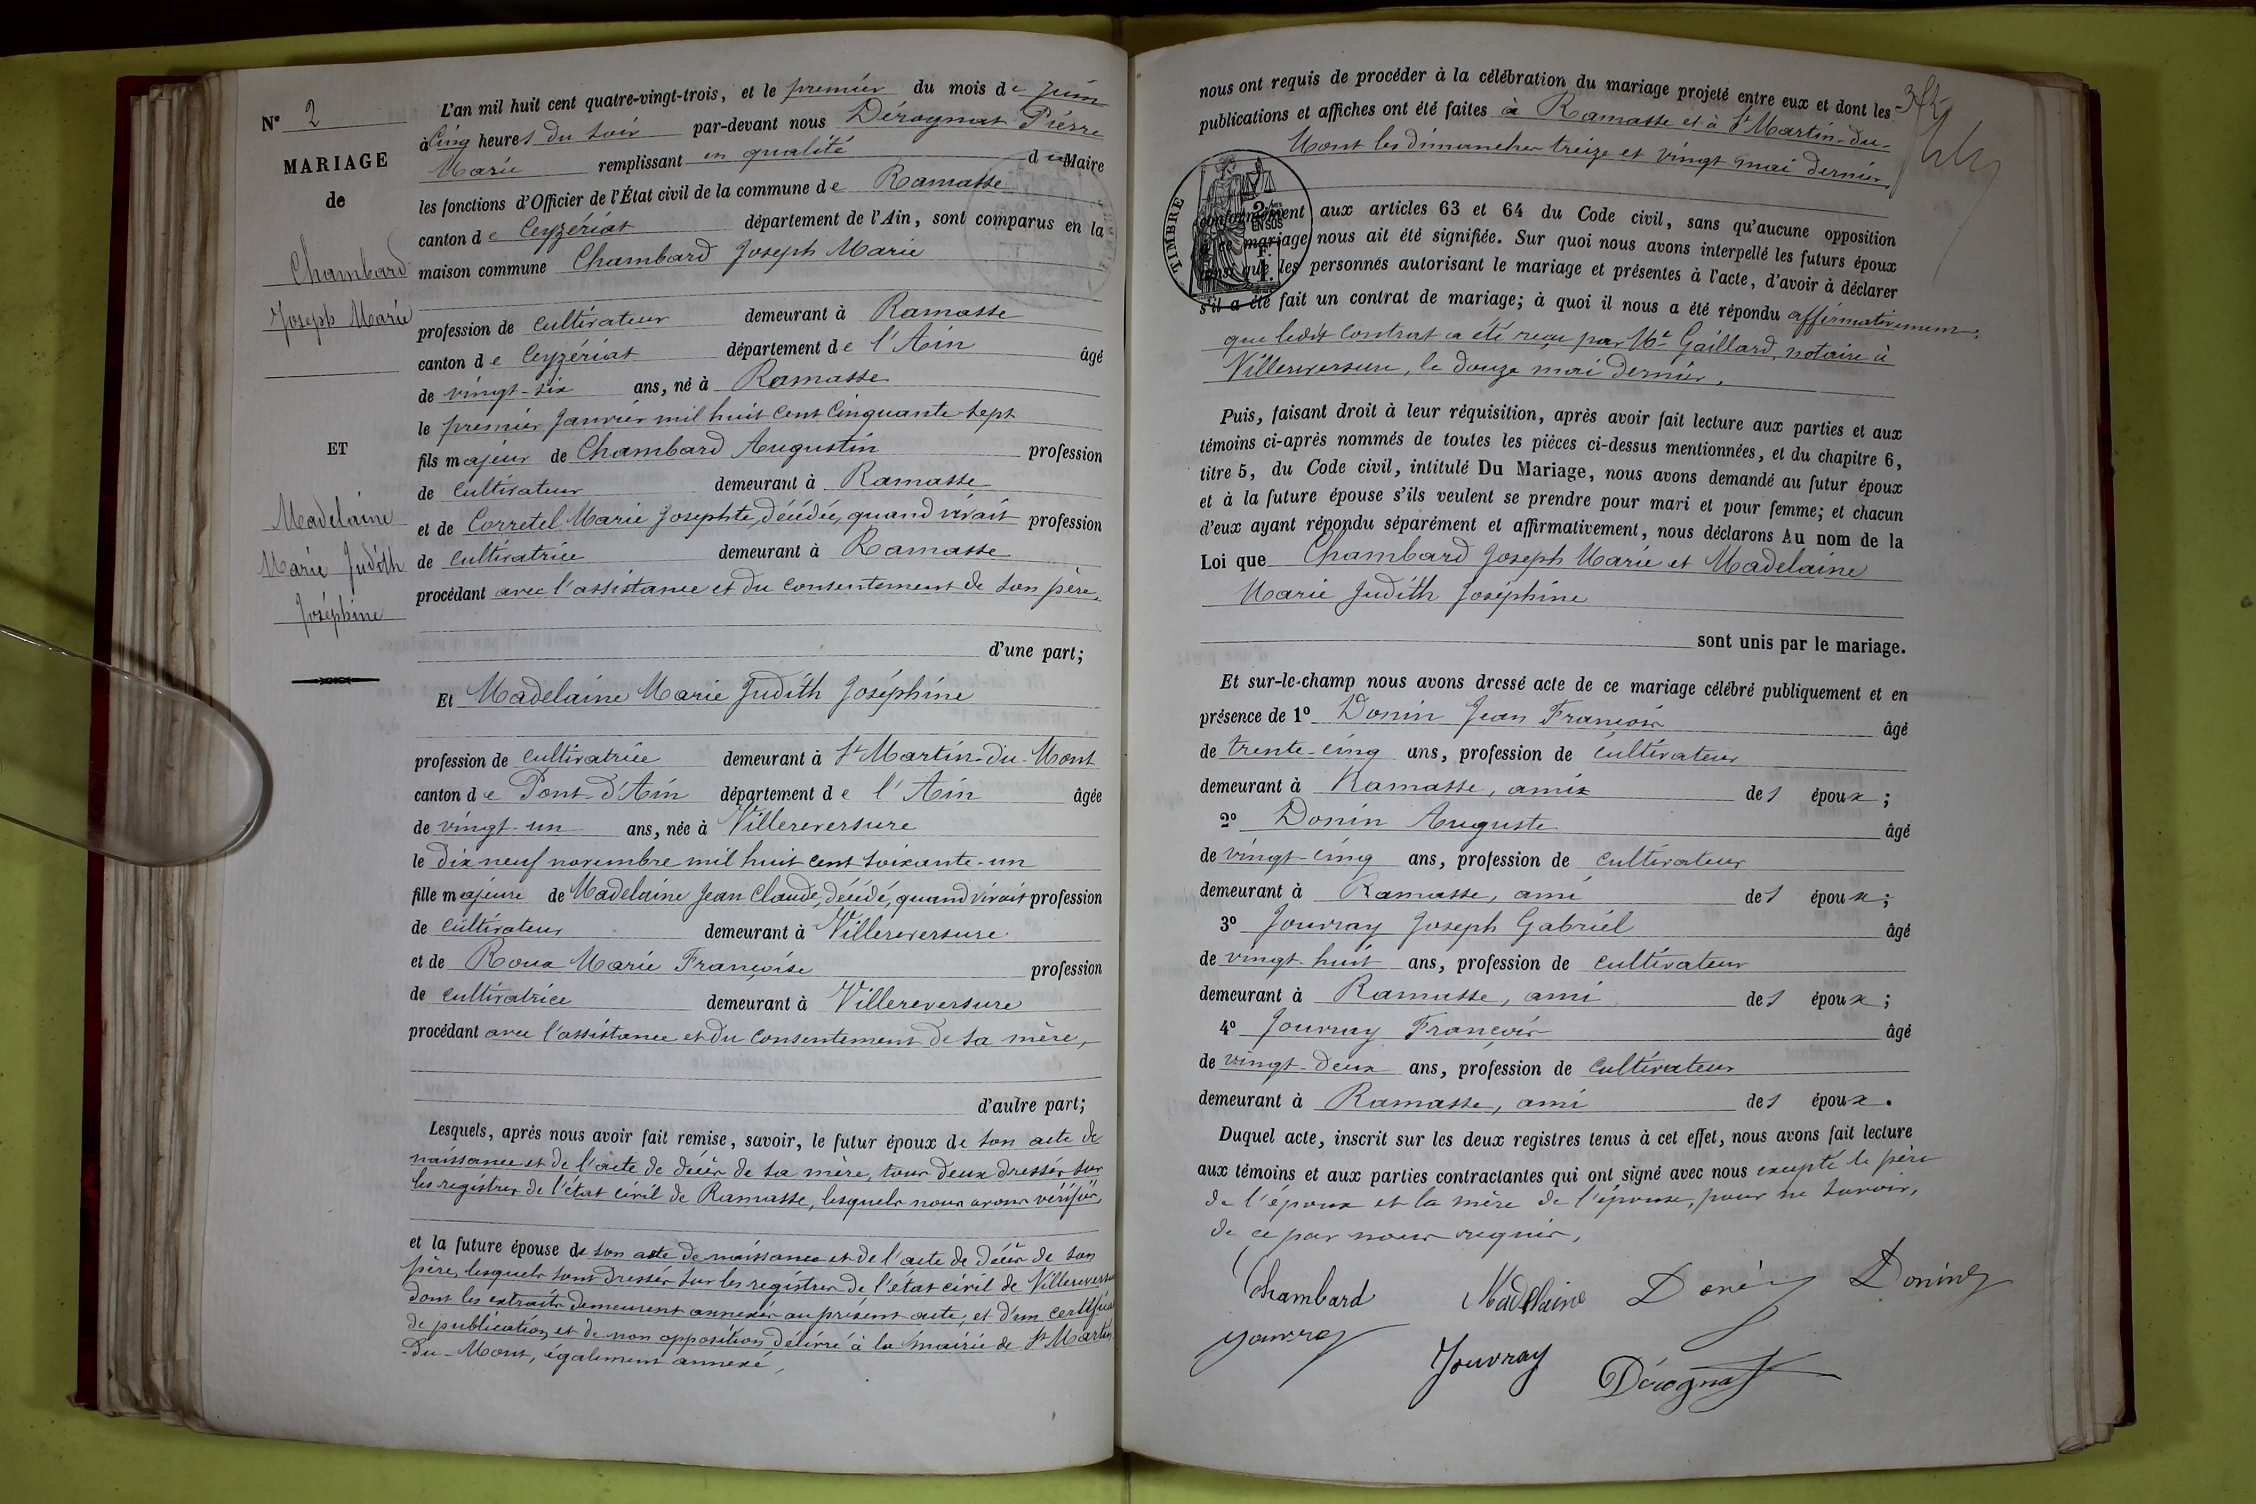 N° 2
MARIAGE
de
Chambard
Joseph Marie
ET
Madelaine
Marie Judith
Joséphine
L'an mil huit cent quatre-vingt-trois, et le premier du mois de Juin
à Cinq heures du soir par-devant nous Dérognat Pierre
Marie remplissant en qualité de Maire
les fonctions d'Officier de l'État civil de la commune de Ramasse
canton de Ceyzériat département de l'Ain, sont comparus en la
maison commune Chambard Joseph Marie
profession de cultivateur demeurant à Ramasse
canton de Ceyzériat département de l'Ain âgé
de vingt-six ans, né à Ramasse
le premier Janvier mil huit cent cinquante-sept
fils majeur de Chambard Augustin profession
de cultivateur demeurant à Ramasse
et de Corretel Marie Josephte, décédée, quand vivait profession
de cultivatrice demeurant à Ramasse
procédant avec l'assistance et du consentement de son père,
d'une part;
Et Madelaine Marie Judith Joséphine
profession de cultivatrice demeurant à St Martin-du-Mont
canton de Pont-d'Ain département de l'Ain âgée
de vingt-un ans, née à Villereversure
le dix neuf novembre mil huit cent soixante-un
fille majeure de Madelaine Jean Claude, décédé, quand vivait profession
de cultivateur demeurant à Villereversure
et de Roux Marie Françoise profession
de cultivatrice demeurant à Villereversure
procédant avec l'assistance et du consentement de sa mère,
d'autre part;
Lesquels, après nous avoir fait remise, savoir, le futur époux de son acte de
naissance et de l'acte de décès de sa mère, tous deux dressés sur
les registres de l'état civil de Ramasse, lesquels nous avons vérifiés,
et la future épouse de son acte de naissance et de l'acte de décès de son
père, lesquels sont dressés sur les registres de l'état civil de Villereversure
dont les extraits demeurent annexés au présent acte, et d'un certificat
de publication et de non opposition délivré à la mairie de St Martin
-du-Mont, également annexé,
nous ont requis de procéder à la célébration du mariage projeté entre eux et dont les
publications et affiches ont été faites à Ramasse et à St Martin-du-
Mont les dimanches treize et vingt mai dernier,
TIMBRE
2/10es
EN SUS
1 F.
conformément aux articles 63 et 64 du Code civil, sans qu'aucune opposition
à ce mariage nous ait été signifiée. Sur quoi nous avons interpellé les futurs époux
ainsi que les personnes autorisant le mariage et présentes à l'acte, d'avoir à déclarer
s'il a été fait un contrat de mariage; à quoi il nous a été répondu affirmativement,
que ledit contrat a été reçu par Me Gaillard, notaire à
Villereversure, le douze mai dernier,
Puis, faisant droit à leur réquisition, après avoir fait lecture aux parties et aux
témoins ci-après nommés de toutes les pièces ci-dessus mentionnées, et du chapitre 6,
titre 5, du Code civil, intitulé Du Mariage, nous avons demandé au futur époux
et à la future épouse s'ils veulent se prendre pour mari et pour femme; et chacun
d'eux ayant répondu séparément et affirmativement, nous déclarons Au nom de la
Loi que Chambard Joseph Marie et Madelaine
Marie Judith Joséphine
sont unis par le mariage.
Et sur-le-champ nous avons dressé acte de ce mariage célébré publiquement et en
présence de 1° Donin Jean François âgé
de trente-cinq ans, profession de cultivateur
demeurant à Ramasse, ami des époux;
2° Donin Auguste âgé
de vingt-cinq ans, profession de cultivateur
demeurant à Ramasse, ami des époux;
3° Jouvray Joseph Gabriel âgé
de vingt-huit ans, profession de cultivateur
demeurant à Ramasse, ami des époux;
4° Jouvray François âgé
de vingt-deux ans, profession de cultivateur
demeurant à Ramasse, ami des époux.
Duquel acte, inscrit sur les deux registres tenus à cet effet, nous avons fait lecture
aux témoins et aux parties contractantes qui ont signé avec nous excepté le père
de l'époux et la mère de l'épouse, pour ne savoir,
de ce par nous requis,
Chambard Madelaine Donin Donin
Jouvray
Jouvray Dérognat